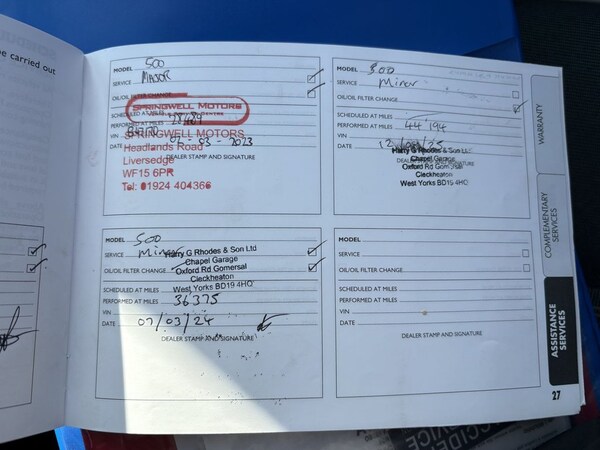 be carried out
MODEL 500
SERVICE MAJOR
OIL/OIL FILTER CHANGE
SPRINGWELL MOTORS
SCHEDULED AT MILES
PERFORMED AT MILES
VIN
SPRINGWELL MOTORS
DATE 02-03-2023
Headlands Road
DEALER STAMP AND SIGNATURE
Liversedge
WF15 6PR
Tel: 01924 404366
MODEL 500
SERVICE Minor
OIL/OIL FILTER CHANGE
SCHEDULED AT MILES
PERFORMED AT MILES 44194
VIN
DATE
Harry G Rhodes & Son Ltd
DEALER STAMP AND SIGNATURE
Chapel Garage
Oxford Rd Gomersal
Cleckheaton
West Yorks BD19 4HQ
MODEL 500
SERVICE Minor
Harry G Rhodes & Son Ltd
Chapel Garage
OIL/OIL FILTER CHANGE
Oxford Rd Gomersal
Cleckheaton
SCHEDULED AT MILES
West Yorks BD19 4HQ
PERFORMED AT MILES 36375
VIN
DATE 07/03/24
DEALER STAMP AND SIGNATURE
MODEL
SERVICE
OIL/OIL FILTER CHANGE
SCHEDULED AT MILES
PERFORMED AT MILES
VIN
DATE
DEALER STAMP AND SIGNATURE
WARRANTY
COMPLEMENTARY
SERVICES
ASSISTANCE
SERVICES
27